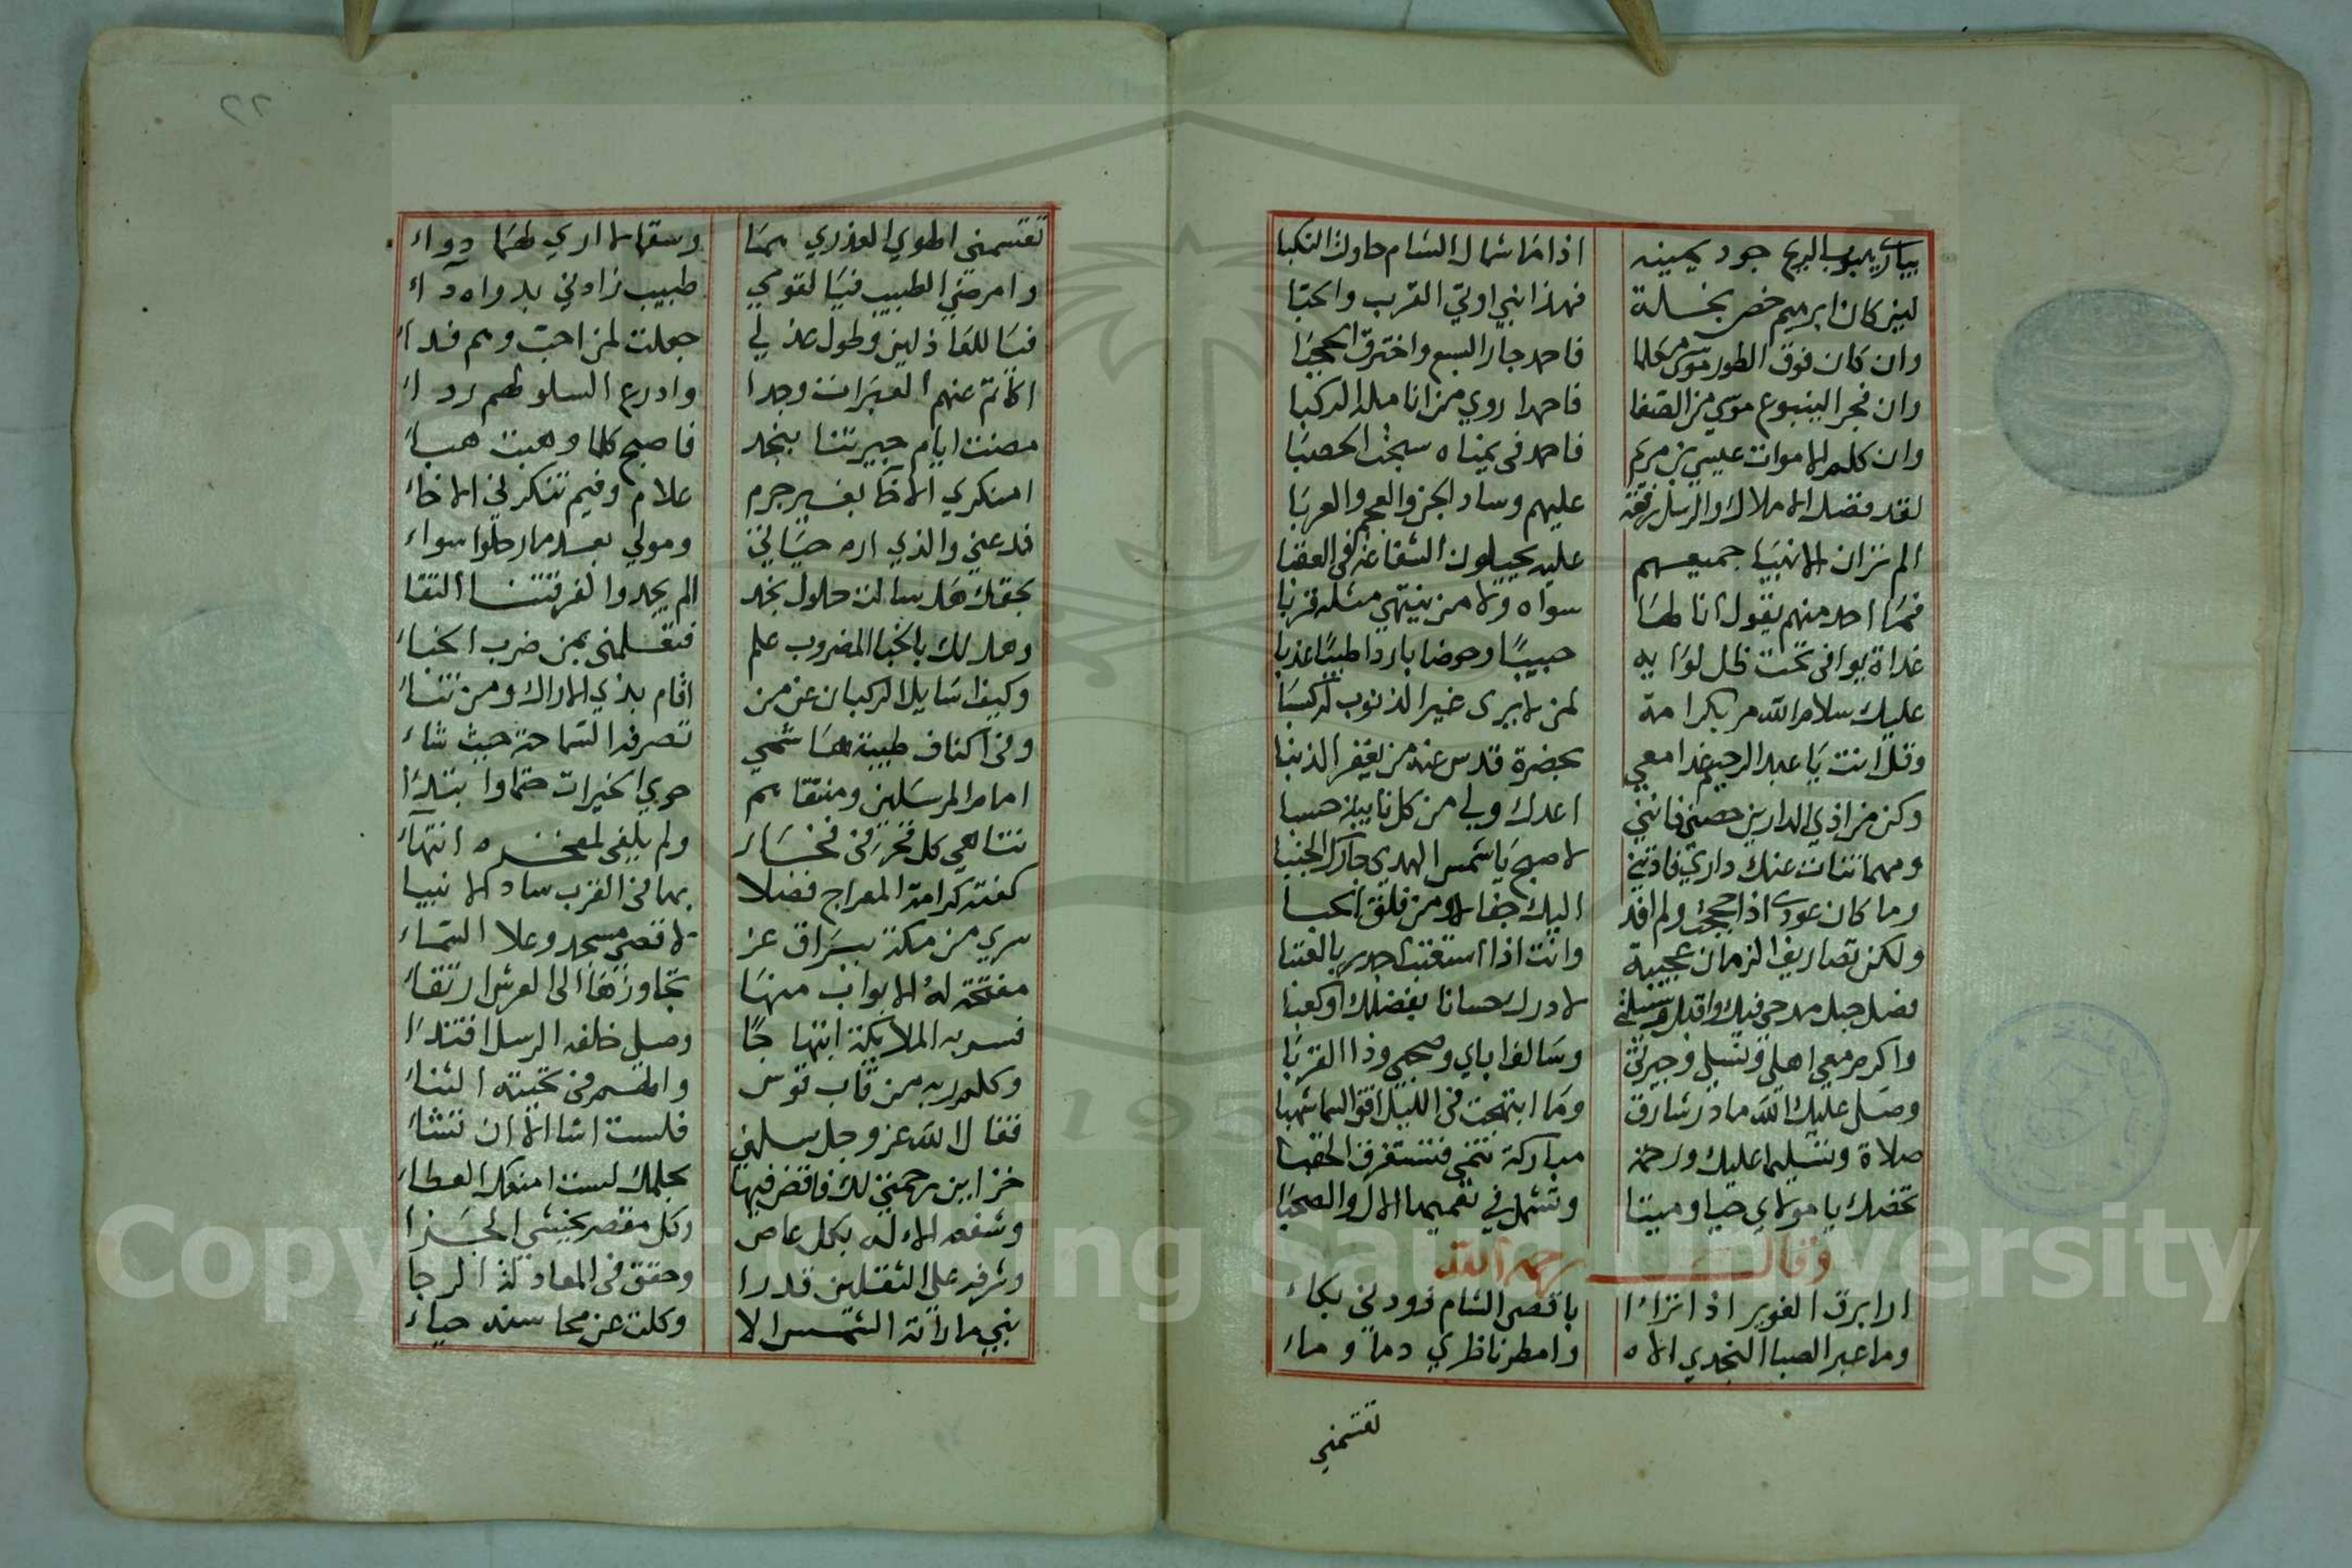 ٢٢
يباري هبوب الريح جود يمينه اذا ما شمال الشام حاولت النكبا
لين كان ابرهيم خص بخلة فهذا نبي اوتي القرب والحبا
وان كان فوق الطور موسى مكلما فاحمد جاز السبع واخترق الحجبا
وان فجر الينبوع موسى من الصفا فاحمد اروي من انامله الركبا
وان كلم الاموات عيسى بن مريم فاحمد في يمناه سبحت الحصبا
لقد فضل الاملاك والرسل رفعة عليهم وساد الجن والعجم والعربا
الم تر ان الانبيا جميعهم عليه يحيلون الشفاعة في العقبا
فما احد منهم يقول انا لها سواه ولا من ينتهي مثله قربا
غداة يوافى تحت ظل لوايه حبيبا وحوضا باردا طيبا عذبا
عليك سلام الله مر بكرامة لمن لا يرى غير الذنوب له كسبا
وقل انت يا عبد الرحيم غدا معي بحضرة قدس عند من يغفر الذنبا
وكن من اذي الدارين حصني فانني اعدك لي من كل نايبة حسبا
ومهما تناءت عنك داري فادنني لاصبح يا شمس الهدي جارك الجنبا
وما كان عودى اذا حججت ولم افد اليك جفا لا ومن فلق الحبا
ولكن تصاريف الزمان عجيبة وانت اذا استعتبت اجدر بالعتبا
فصل حبل مدحي فيك واقبل وسيلتي لادرك حسانا بفضلك او كعبا
واكرم معي اهلي ونسلي وجيرتي وسالف اباي وصحبي وذا القربا
وصل عليك الله ما در شارق وما ابتهجت في الليل افق السما شهبا
صلاة وتسليما عليك ورحمة مباركة تنمى فتستغرق الحقبا
تخصك يا مولاي حيا وميتا وتشمل في تعميمها الال والصحبا
وقال رحمه الله
ارا برق الغوير اذا تراءا باقصى الشام زودني بكاء
وما عبر الصبا النجدي الا وامطر ناظري دما وماء
تقسمني
تقسمني الهوي العذري هما وسقما لا اري لهما دواء
وامرضني الطبيب فيا لقومي طبيب زادني بدواه داء
فيا للعاذلين وطول عذلي جعلت لمن احب وهم فداء
اكاتم عنهم العبرات وجدا وادرع السلو لهم رداء
مضت ايام جيرتنا بنجد فاصبح كلما وهبت هباء
امنكري الاخا بغير جرم علام وفيم تنكرني الاخاء
فدعني والذي اره حياني وموتي بعد ما رحلوا سواء
بحقك هل سالت حلول نجد الم يجدوا لفرقتنا التقا
وهل لك بالخبا المضروب علم فتعلمني بمن ضرب الخباء
وكيف سايل الركبان عن من اقام بذي الاراك ومن تناء
وفي اكناف طيبة هاشمي تصرفه السماحة حيث شاء
امام المرسلين ومنتقاهم حوي الخيرات ختما وابتداء
تناهي كل فخر في فخار ولم يلفى لمفخره انتهاء
كفته كرامة المعراج فضلا بها في القرب ساد الانبيا
سري من مكة ببراق عز لاقصى مسجد وعلا السماء
مفتحة له الابواب منها تجاوزها الى العرش ارتقاء
فسر به الملايكة ابتهاجا وصلى خلفه الرسل اقتداء
وكلم ربه من قاب قوس والهم في تحيته الثناء
فقال الله عز وجل سلني فلست اشا الا ان تشاء
خزاين رحمتي لك فاقض فيها بحلمك لست امنعك العطاء
وشفعه الاله بكل عاص وكل مقصر يخشي الجزا
وشرفه على الثقلين قدرا وحقق في المعاد له الرجا
نبي ما راته الشمس الا وكلت عن محاسنه حياء
Copyright © King Saud University
195